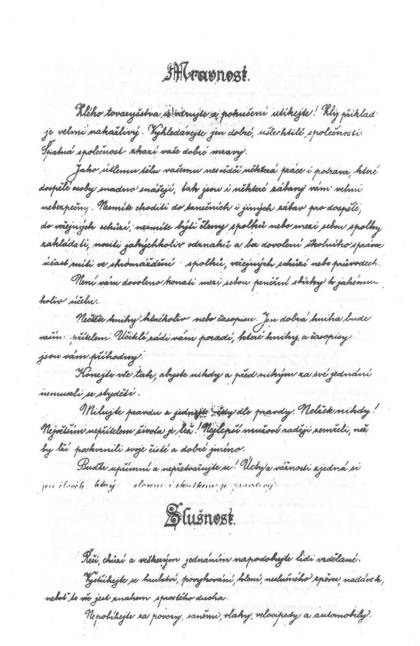 Mravnost.
Zlého tovaryšstva se varujte a pokušení utíkejte! Zlý příklad
je velmi nakažlivý. Vyhledávejte jen dobré, ušlechtilé společnosti.
Špatná společnost zkazí vaše dobré mravy.
Jako útlému tělu vašemu nesvědčí některá práce i potrava, které
dospělé osoby snadno snášejí, tak jsou i některé zábavy vám velmi
nebezpečny. Nesmíte choditi do tanečních i jiných zábav pro dospělé,
do veřejných schůzí, nesmíte býti členy spolků nebo mezi sebou spolky
zakládati, nositi jakýchkoliv odznaků a bez dovolení školního správce
účast míti ve shromáždění spolků, veřejných schůzí nebo průvodech.
Není vám dovoleno konati mezi sebou peněžní sbírky k jakému-
koliv účelu.
Nečtěte knihy kterékoliv nebo časopisu. Jen dobrá kniha bude
vaším přítelem. Učitelé rádi vám poradí, které knihy a časopisy
jsou vám příhodny.
Konejte vše tak, abyste nikdy a před nikým za své jednání
nemuseli se styděti.
Milujte pravdu a jednejte vždy dle pravdy. Nelžete nikdy!
Největším nepřítelem života je lež! Nejlepší mužové raději zemřeli, než
by lží poskvrnili svoje čisté a dobré jméno.
Buďte upřímní a nepřetvařujte se! Úcty a vážnosti zjedná si
jen člověk, který slovem i skutkem je pravdivý.
Slušnost.
Řečí, chůzí a veškerým jednáním napodobujte lidi vzdělané.
Vystříhejte se hrubství, povykování, klení, neslušného zpěvu, nadávek,
neboť to vše jest znakem sprostého ducha.
Nepobíhejte za povozy, saněmi, vlaky, velocipedy a automobily.